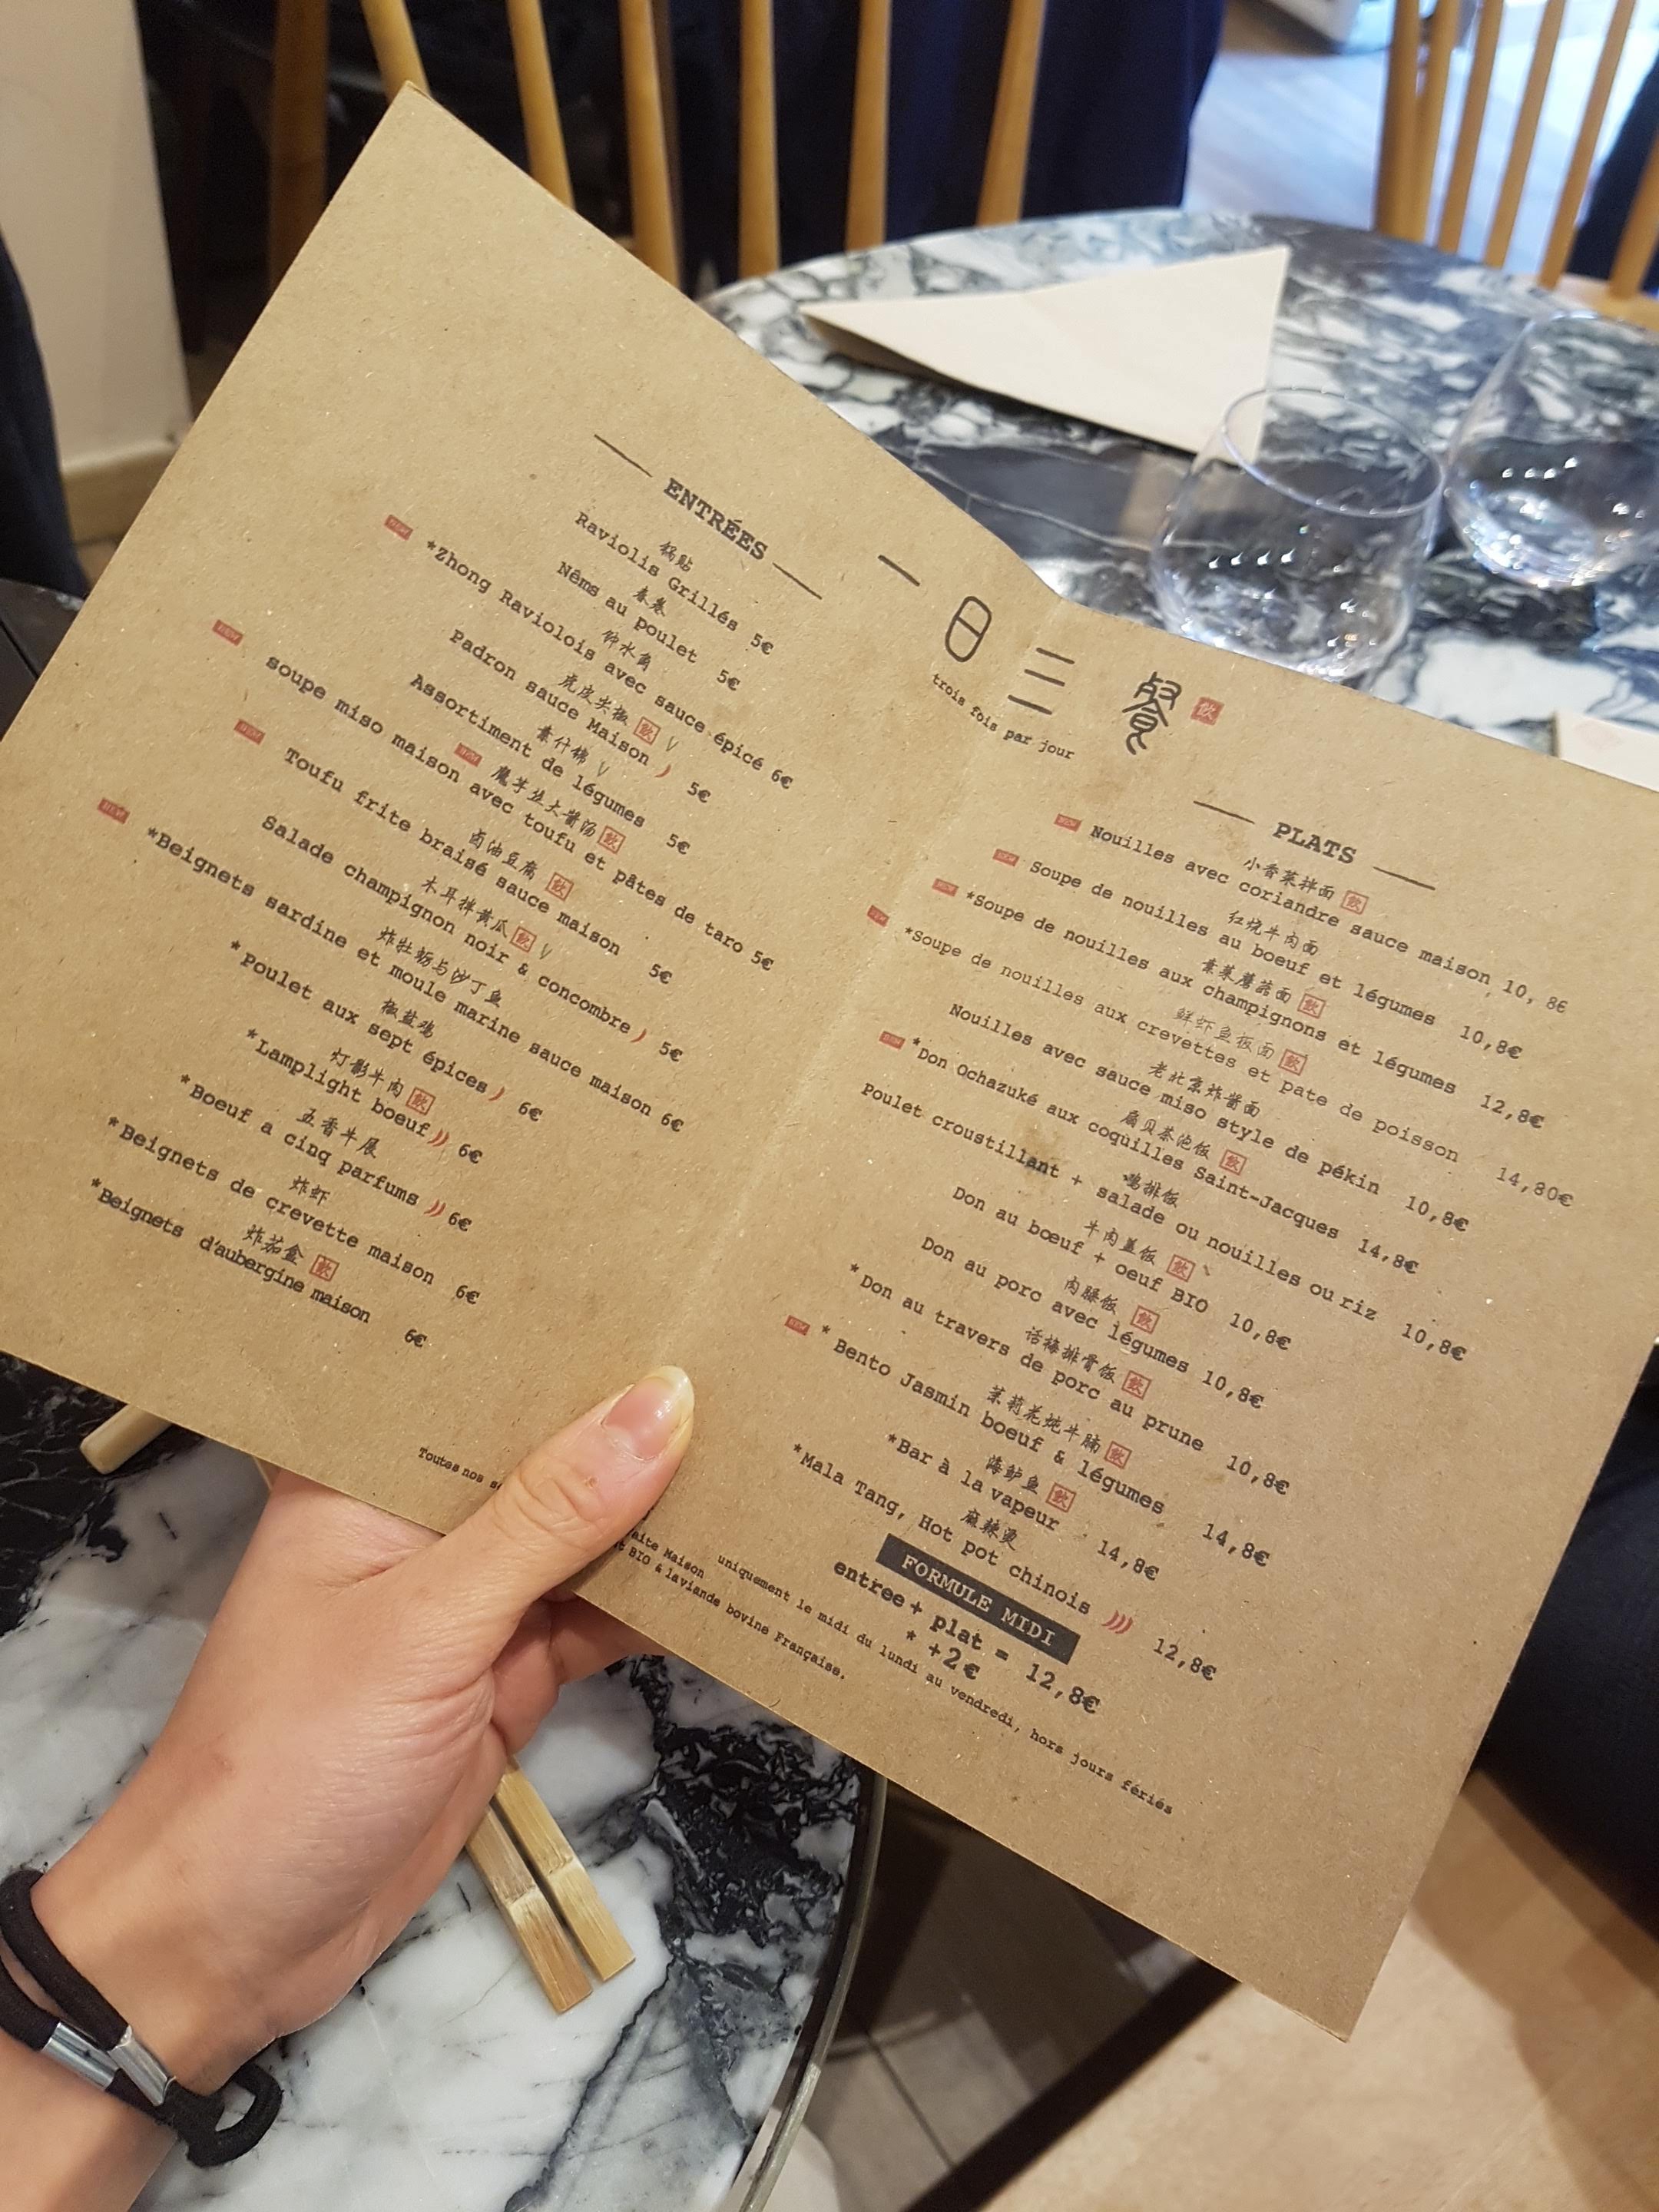 ENTRÉES
锅贴
Raviolis Grillés 5€
春卷
Nêms au poulet 5€
钟水角
*Zhong Raviolois avec sauce épicé 6€
虎皮尖椒 飲 V
Padron sauce Maison 5€
素什锦 V
Assortiment de légumes 5€
魔芋丝大酱汤 飲
soupe miso maison avec toufu et pâtes de taro 5€
卤油豆腐 飲
Toufu frite braisé sauce maison 5€
木耳拌黄瓜 飲 V
Salade champignon noir & concombre 5€
炸牡蛎与沙丁鱼
*Beignets sardine et moule marine sauce maison 6€
椒盐鸡
*Poulet aux sept épices 6€
灯影牛肉 飲
*Lamplight boeuf 6€
五香牛展
*Boeuf a cinq parfums 6€
炸虾
*Beignets de crevette maison 6€
炸茄盒 飲
*Beignets d'aubergine maison 6€
Toutes nos
一日三餐 飲
trois fois par jour
PLATS
小香菜拌面 飲
Nouilles avec coriandre sauce maison 10,8€
红烧牛肉面
Soupe de nouilles au boeuf et légumes 10,8€
素菜蘑菇面 飲
*Soupe de nouilles aux champignons et légumes 12,8€
鲜虾鱼板面 飲
*Soupe de nouilles aux crevettes et pate de poisson 14,80€
老北京炸酱面
Nouilles avec sauce miso style de pékin 10,8€
扇贝茶泡饭 飲
*Don Ochazuké aux coquilles Saint-Jacques 14,8€
鸡排饭
Poulet croustillant + salade ou nouilles ou riz 10,8€
牛肉盖饭 飲
Don au bœuf + oeuf BIO 10,8€
肉臊饭 飲
Don au porc avec légumes 10,8€
话梅排骨饭 飲
*Don au travers de porc au prune 10,8€
茉莉花炖牛腩 飲
* Bento Jasmin boeuf & légumes 14,8€
海鲈鱼 飲
*Bar à la vapeur 14,8€
麻辣烫
*Mala Tang, Hot pot chinois 12,8€
FORMULE MIDI
entree + plat = 12,8€
* +2€
uniquement le midi du lundi au vendredi, hors jours fériés
Maison
BIO & laviande bovine Française.